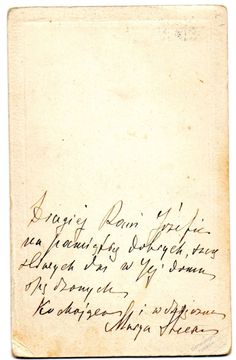 Drogiej Pani Józefie
na pamiątkę dobrych, szczę
śliwych dni w Jej domu
spędzonych
Kochająca i wdzięczna
Marya